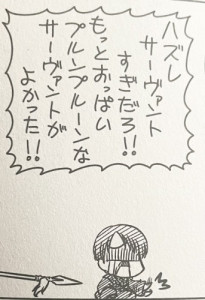 ハズレ
サーヴァント
すぎだろ!!
もっとおっぱい
プルンプルーンな
サーヴァントが
よかった!!